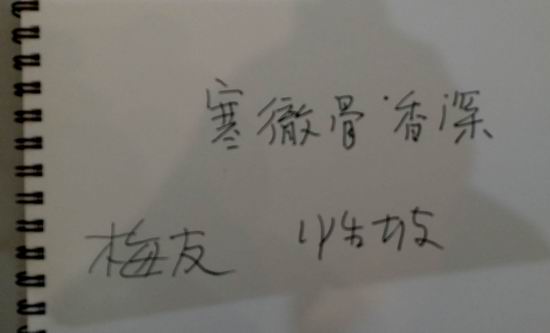 寒徹骨·香深
梅友 小牛坡